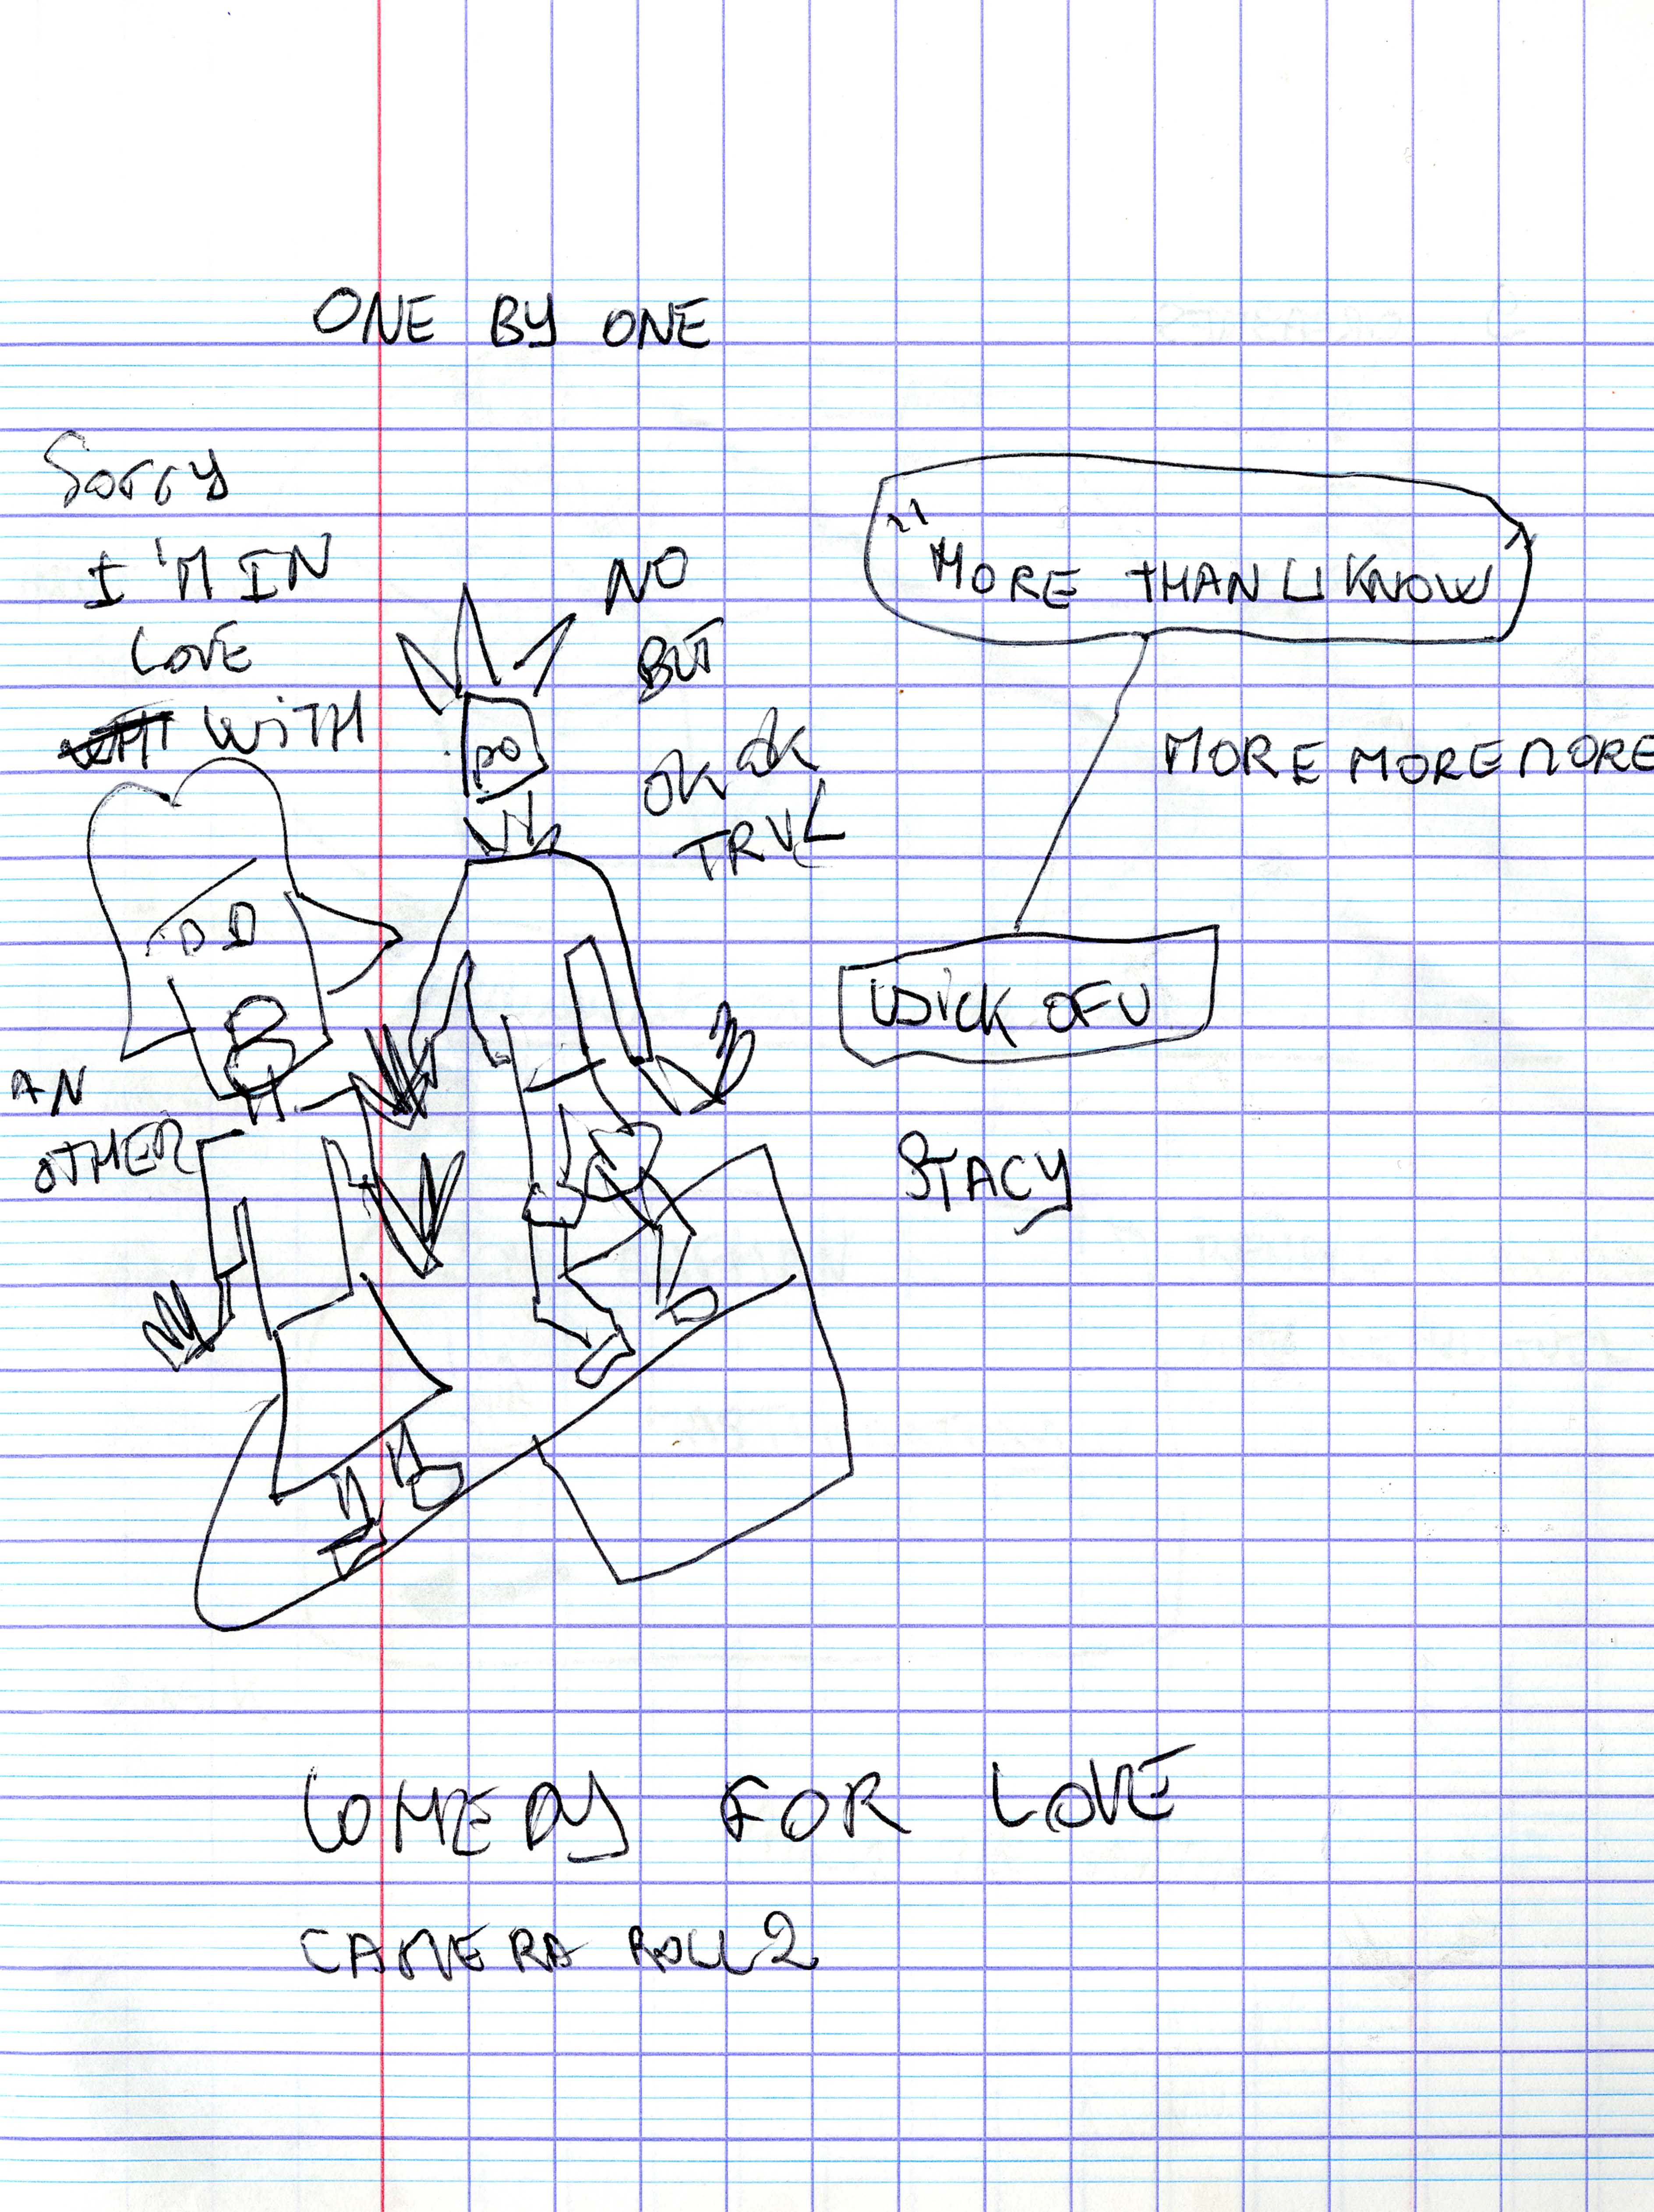 ONE BY ONE
Sorry
I'M IN
LOVE
WITH
AN
OTHER
NO
BUT
OK OK
TRVL
"MORE THAN U KNOW"
MORE MORE MORE
SICK OF U
STACY
COMEDY FOR LOVE
CAMERA ROLL 2